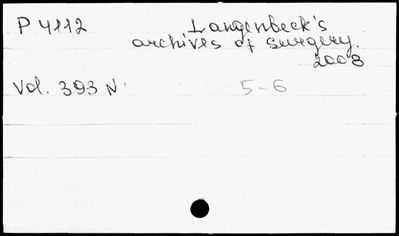 P 4112 Langenbeck's
archives of surgery.
2008
Vol. 393 N. 5-6